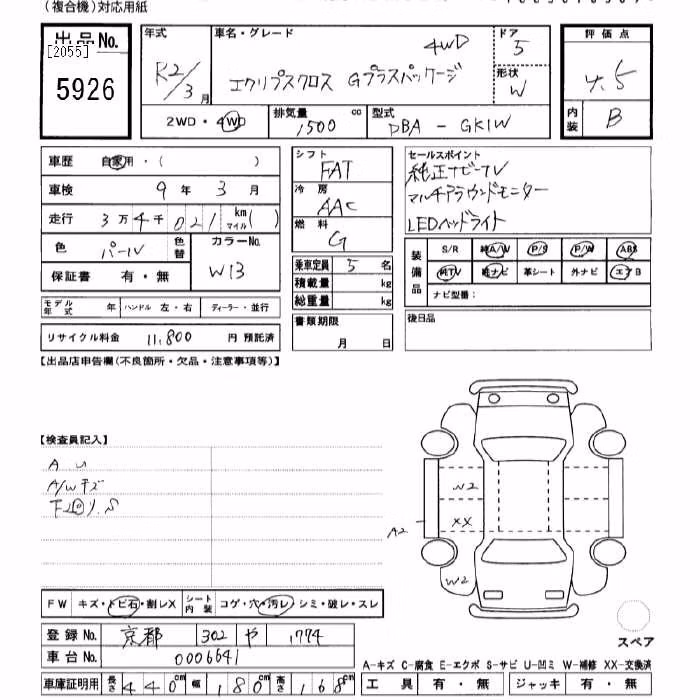 (複合機)対応用紙
出品No.
[2055]
5926
年式
R2/3月
車名・グレード
4WD
エクリプスクロス Gプラスパッケージ
ドア
5
形状
W
2WD・4WD
排気量
1500 cc
型式
DBA - GK1W
評価点
4.5
内装
B
車歴 自家用・( )
車検 9年 3月
走行 3万4千021 km マイル( )
色 パール 色替
カラーNo.
W13
保証書 有・無
モデル年式 年 ハンドル 左・右 ディーラー・並行
リサイクル料金 11,800 円 預託済
シフト
FAT
冷房
AAC
燃料
G
乗車定員 5 名
積載量 kg
総重量 kg
書類期限
月 日
セールスポイント
純正ナビTV
マルチアラウンドモニター
LEDヘッドライト
装備品
S/R 純A/W P/S P/W ABS
純TV 純ナビ 革シート 外ナビ エアB
ナビ型番:
後日品
【出品店申告欄(不良箇所・欠品・注意事項等)】
【検査員記入】
A U
A/Wキズ
F2回り.S
W2
XX
A2
W2
FW キズ・トビ石・割レX
シート内装 コゲ・穴・汚レ・シミ・破レ・スレ
登録No. 京都 302 や 1774
車台No. 0006641
車庫証明用 長さ 440cm 幅 180cm 高さ 168cm
スペア
A-キズ C-腐食 E-エクボ S-サビ U-凹ミ W-補修 XX-交換済
工具 有・無 ジャッキ 有・無